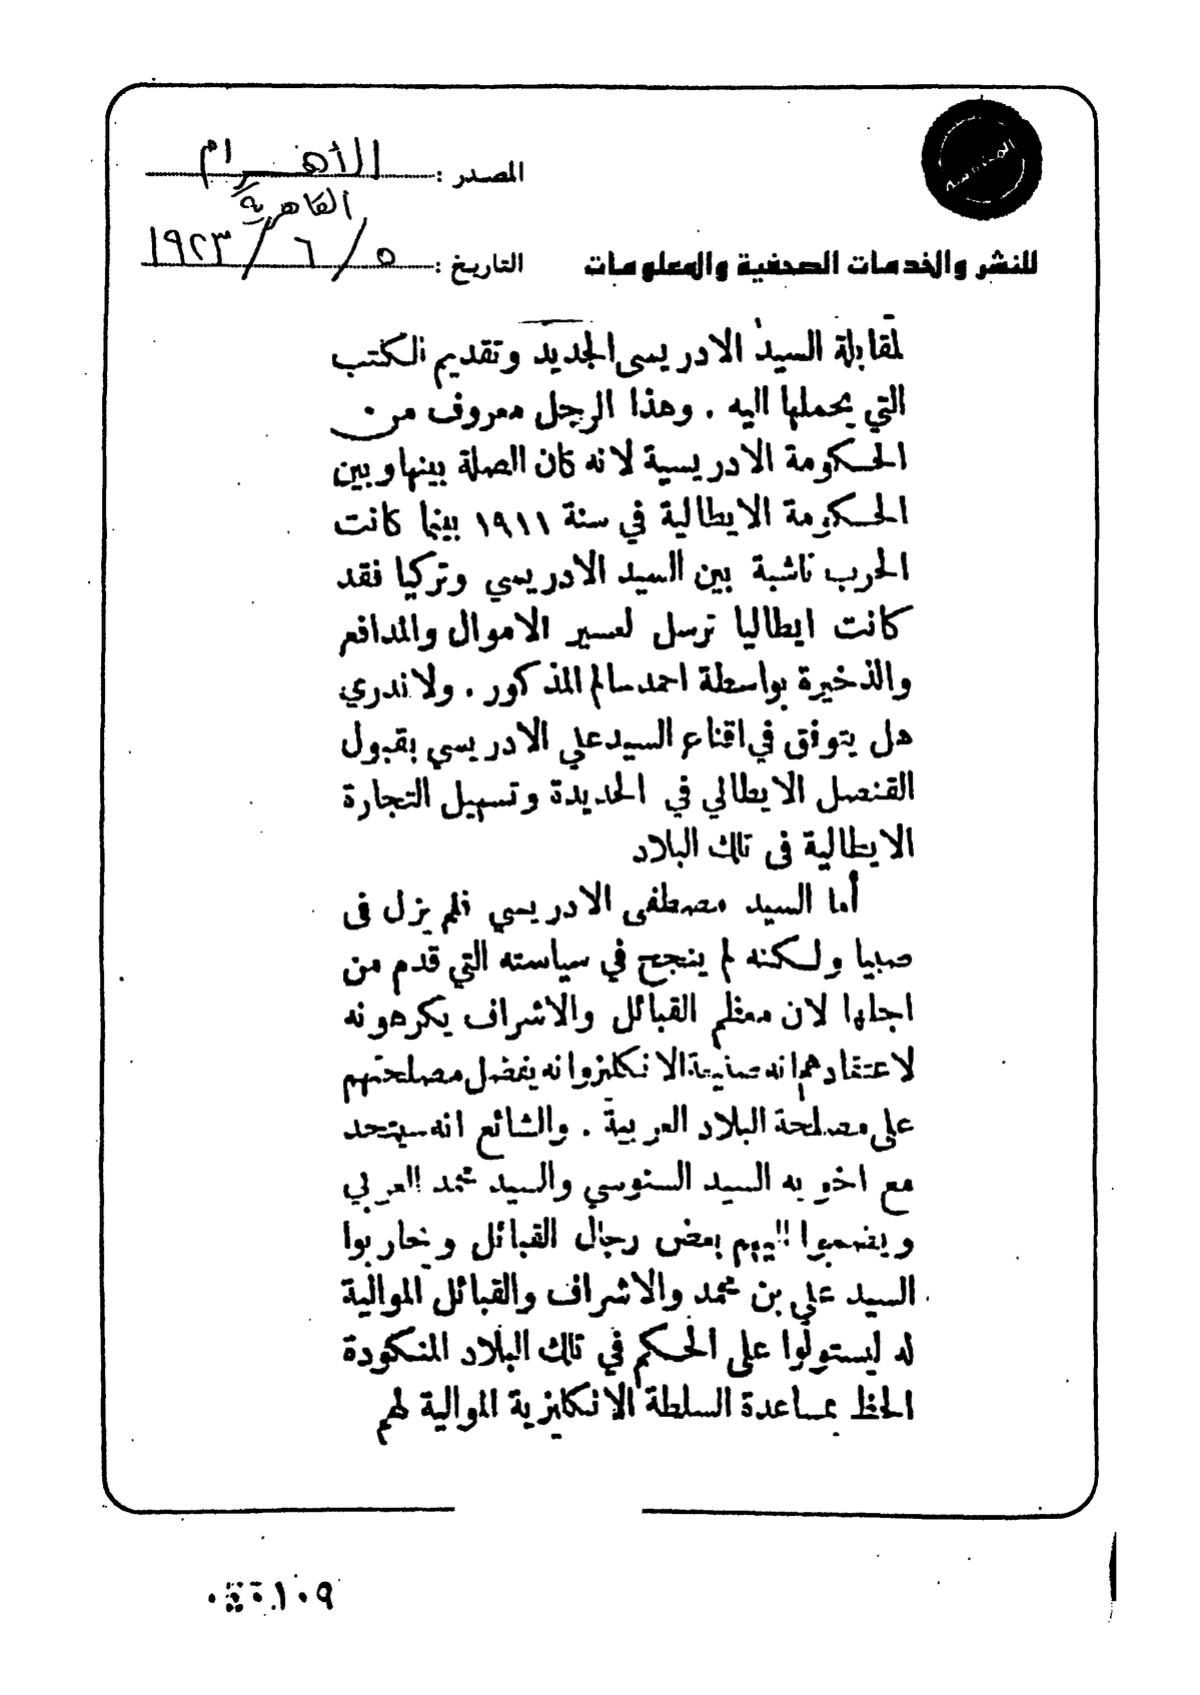 المصدر : الأهرام
القاهرية
التاريخ : ٥ / ٦ / ١٩٢٣
للنشر والخدمات الصحفية والمعلومات
لمقابلة السيد الادريسى الجديد وتقديم الكتب
التي يحملها اليه . وهذا الرجل معروف من
الحكومة الادريسية لانه كان الصلة بينها وبين
الحكومة الايطالية في سنة ١٩١١ بينما كانت
الحرب ناشبة بين السيد الادريسي وتركيا فقد
كانت ايطاليا ترسل لعسير الاموال والمدافع
والذخيرة بواسطة احمد سالم المذكور . ولا ندري
هل يتوفق في اقناع السيد علي الادريسي بقبول
القنصل الايطالي في الحديدة وتسهيل التجارة
الايطالية فى تلك البلاد
أما السيد مصطفى الادريسي فلم يزل فى
صبيا ولكنه لم ينجح في سياسته التي قدم من
اجلها لان معظم القبائل والاشراف يكرهونه
لاعتقادهم انه صنيعة الانكليز وانه يفضل مصلحتهم
على مصلحة البلاد العربية . والشائع انه سيتحد
مع اخويه السيد السنوسي والسيد محمد العربي
ويضموا اليهم بعض رجال القبائل ويحاربوا
السيد علي بن محمد والاشراف والقبائل الموالية
له ليستولوا على الحكم في تلك البلاد المنكودة
الحظ بمساعدة السلطة الانكليزية الموالية لهم